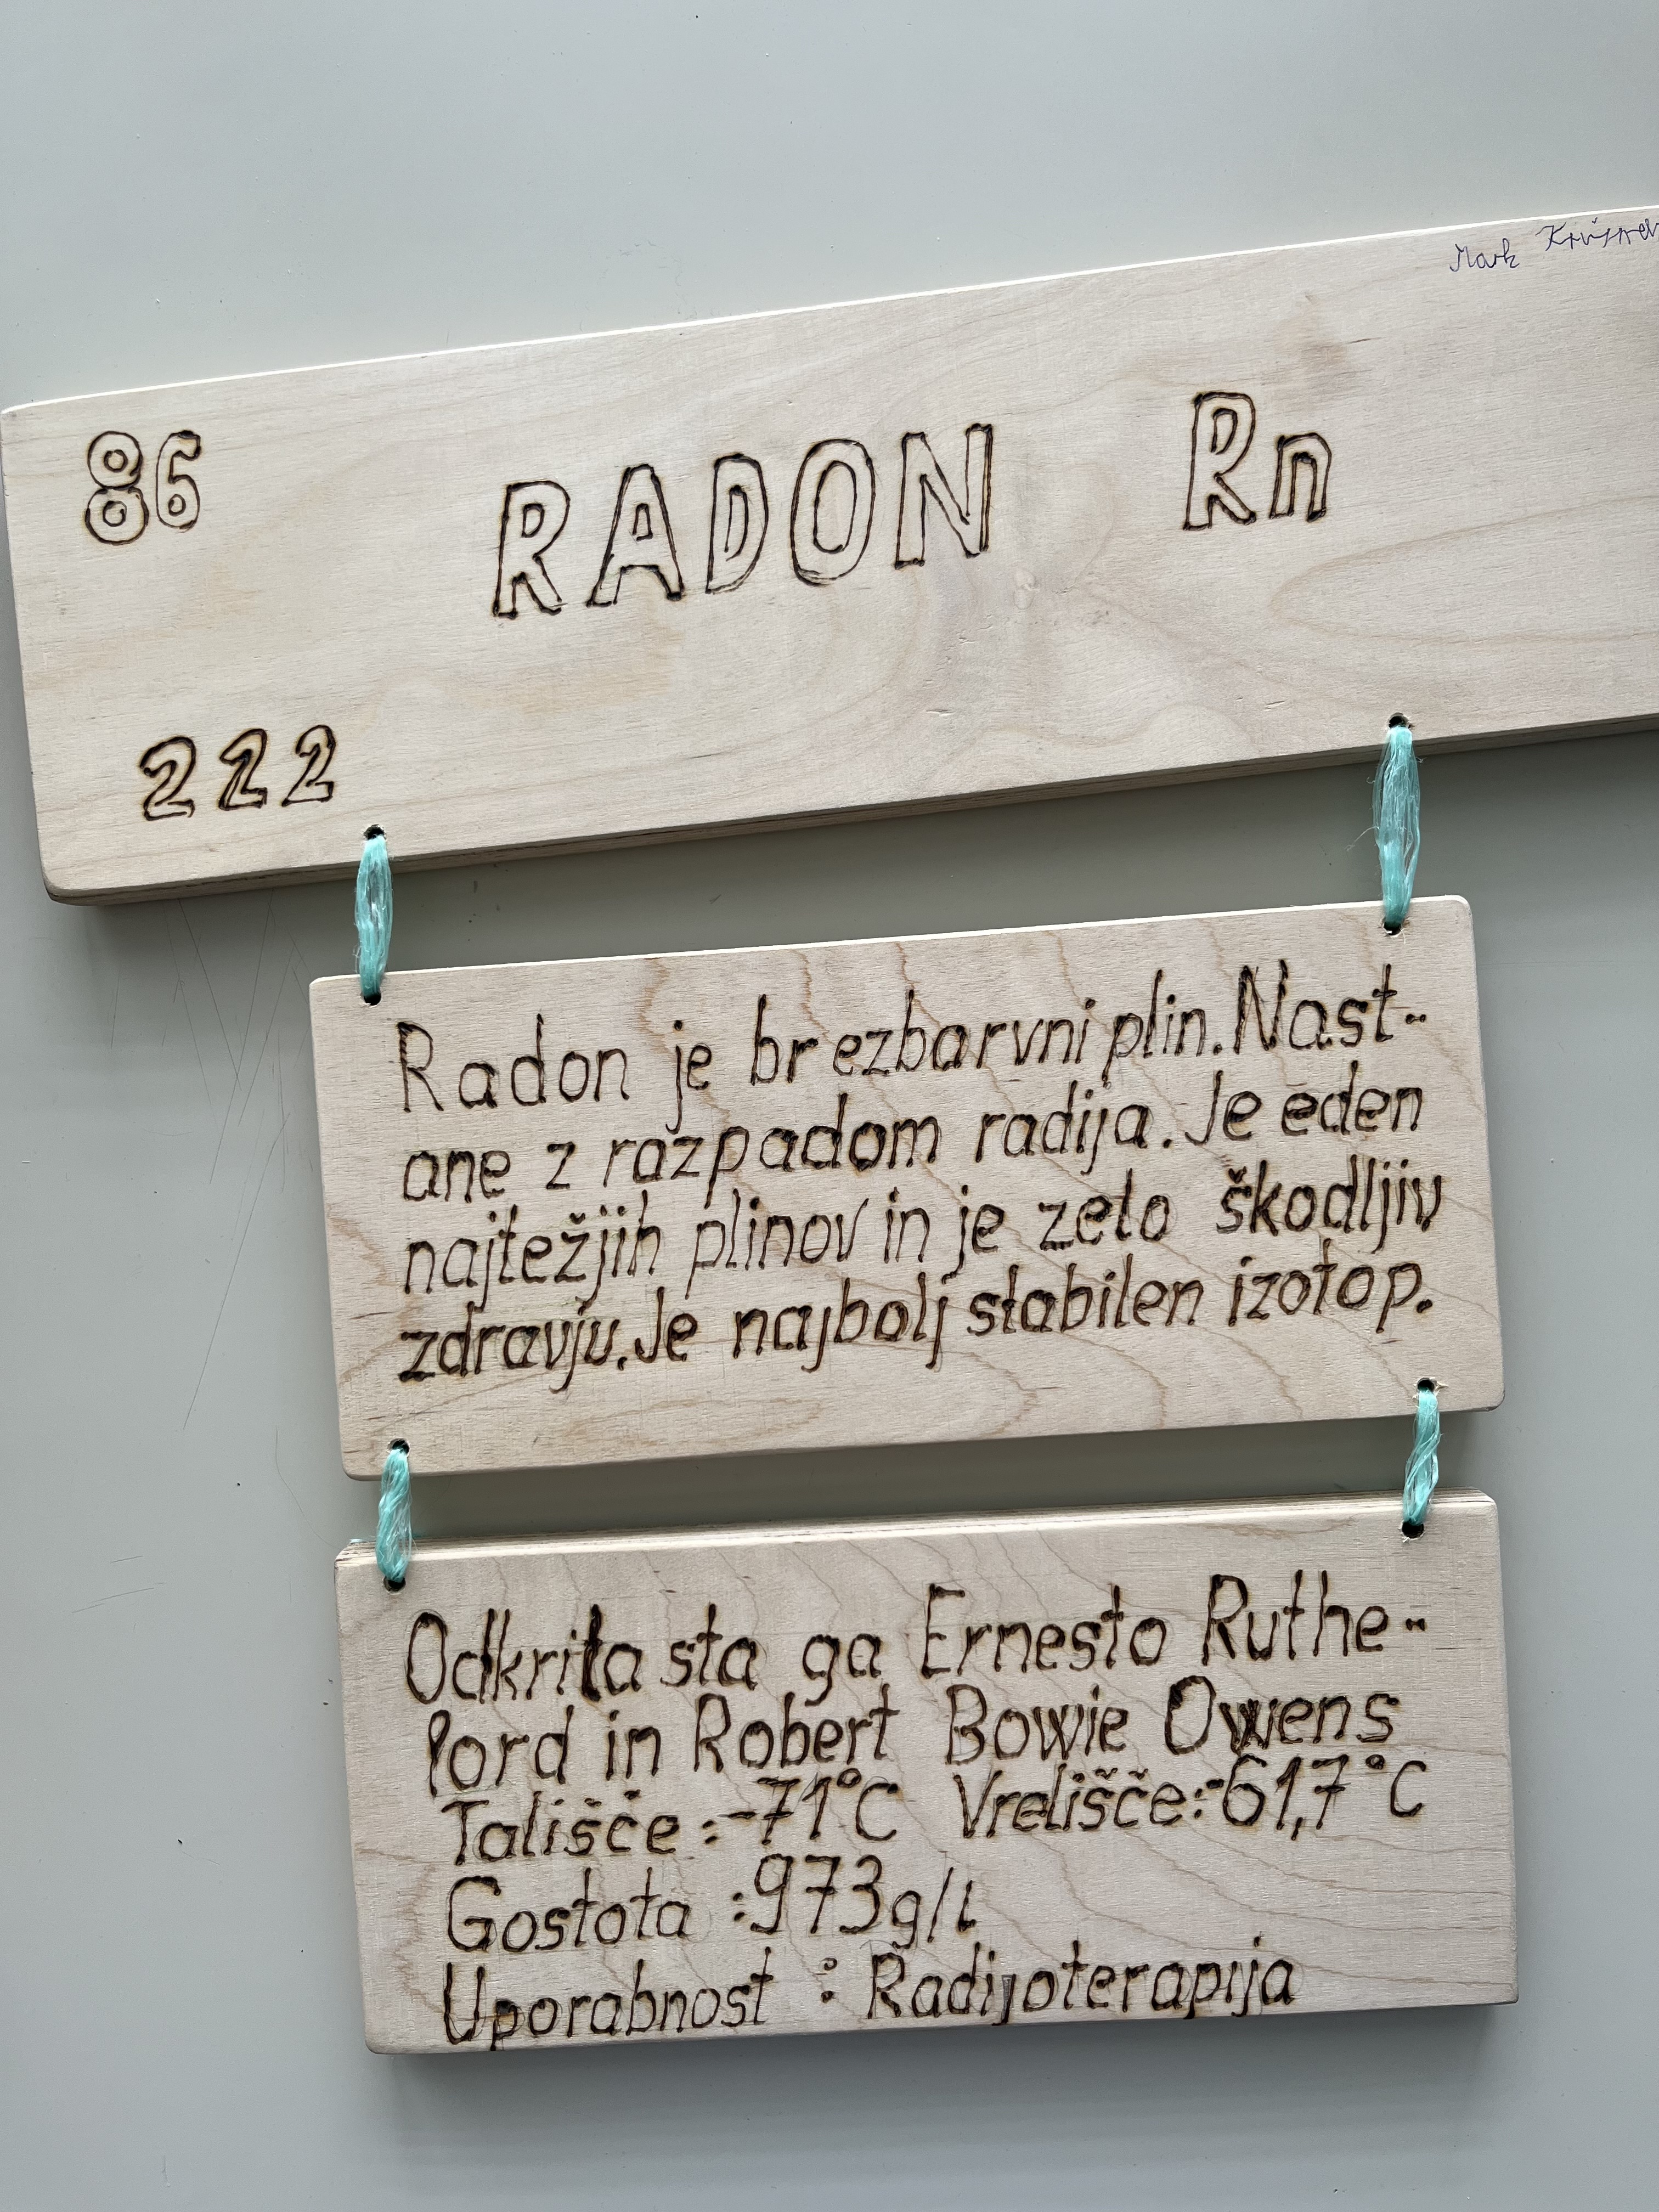 Mark
86 RADON Rn
222
Radon je brezbarvni plin. Nast-
ane z razpadom radija. Je eden
najtežjih plinov in je zelo škodljiv
zdravju. Je najbolj stabilen izotop.
Odkrila sta ga Ernesto Ruthe-
ford in Robert Bowie Owens
Tališče: -71°C Vrelišče: -61,7°C
Gostota : 973g/l
Uporabnost : Radijoterapija